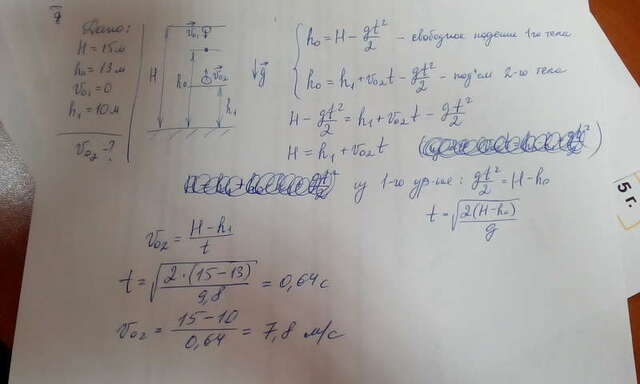 Дано:
H = 15 м
h₀ = 13 м
v₀₁ = 0
h₁ = 10 м
v₀₂ - ?
H
h₀
v⃗₀₂
h₁
g⃗
h₀ = H - gt²/2 - свободное падение 1-го тела
h₀ = h₁ + v₀₂t - gt²/2 - подъём 2-го тела
H - gt²/2 = h₁ + v₀₂t - gt²/2
H = h₁ + v₀₂t
из 1-го ур-ие: gt²/2 = H - h₀
t = √(2(H-h₀)/g)
v₀₂ = (H - h₁)/t
t = √(2·(15-13)/9,8) = 0,64 с
v₀₂ = (15-10)/0,64 = 7,8 м/с
5 г.